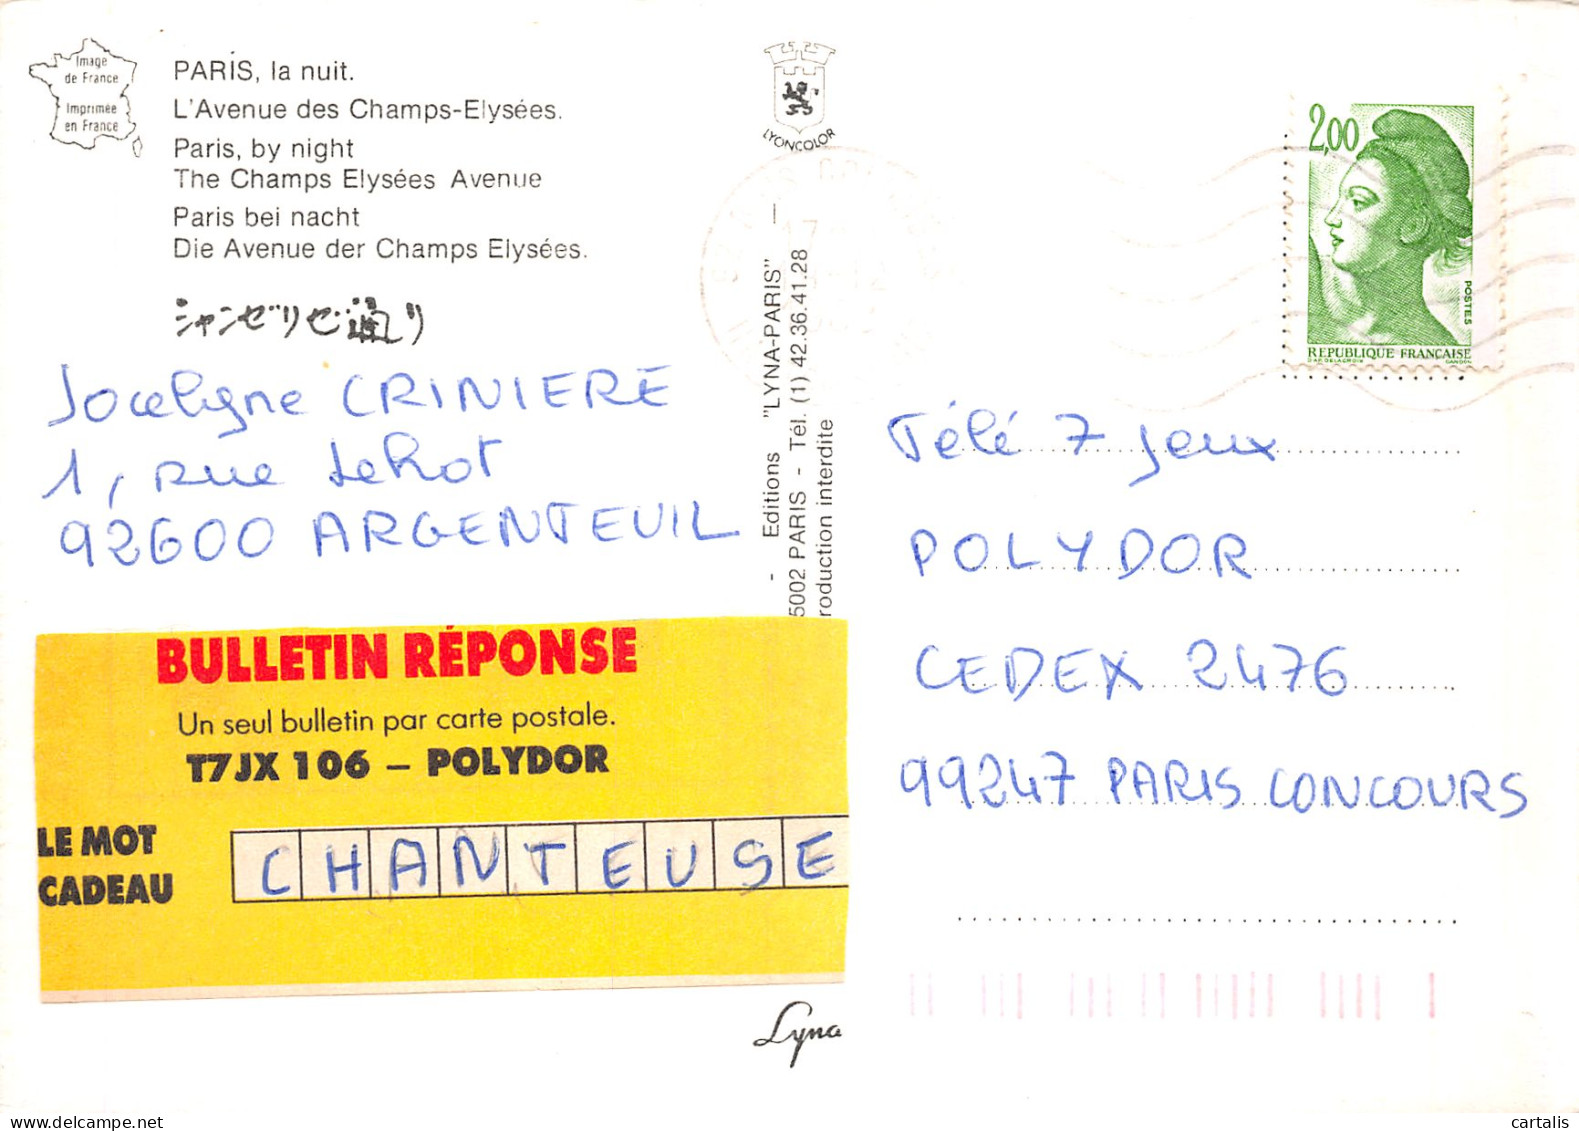 Image
de France
Imprimée
en France
PARIS, la nuit.
L'Avenue des Champs-Elysées.
Paris, by night
The Champs Elysées Avenue
Paris bei nacht
Die Avenue der Champs Elysées.
シャンゼリゼ通り
Jocelyne CRINIERE
1, rue Lehot
92600 ARGENTEUIL
BULLETIN RÉPONSE
Un seul bulletin par carte postale.
T7JX 106 – POLYDOR
LE MOT
CADEAU
CHANTEUSE
Lyna
25 25
LYONCOLOR
- Editions "LYNA-PARIS" -
5002 PARIS - Tél. (1) 42.36.41.28
roduction interdite
2,00
POSTES
REPUBLIQUE FRANÇAISE
D'AP. DELACROIX GANDON
Télé 7 Jeux
POLYDOR
CEDEX 2476
99247 PARIS CONCOURS
cartalis